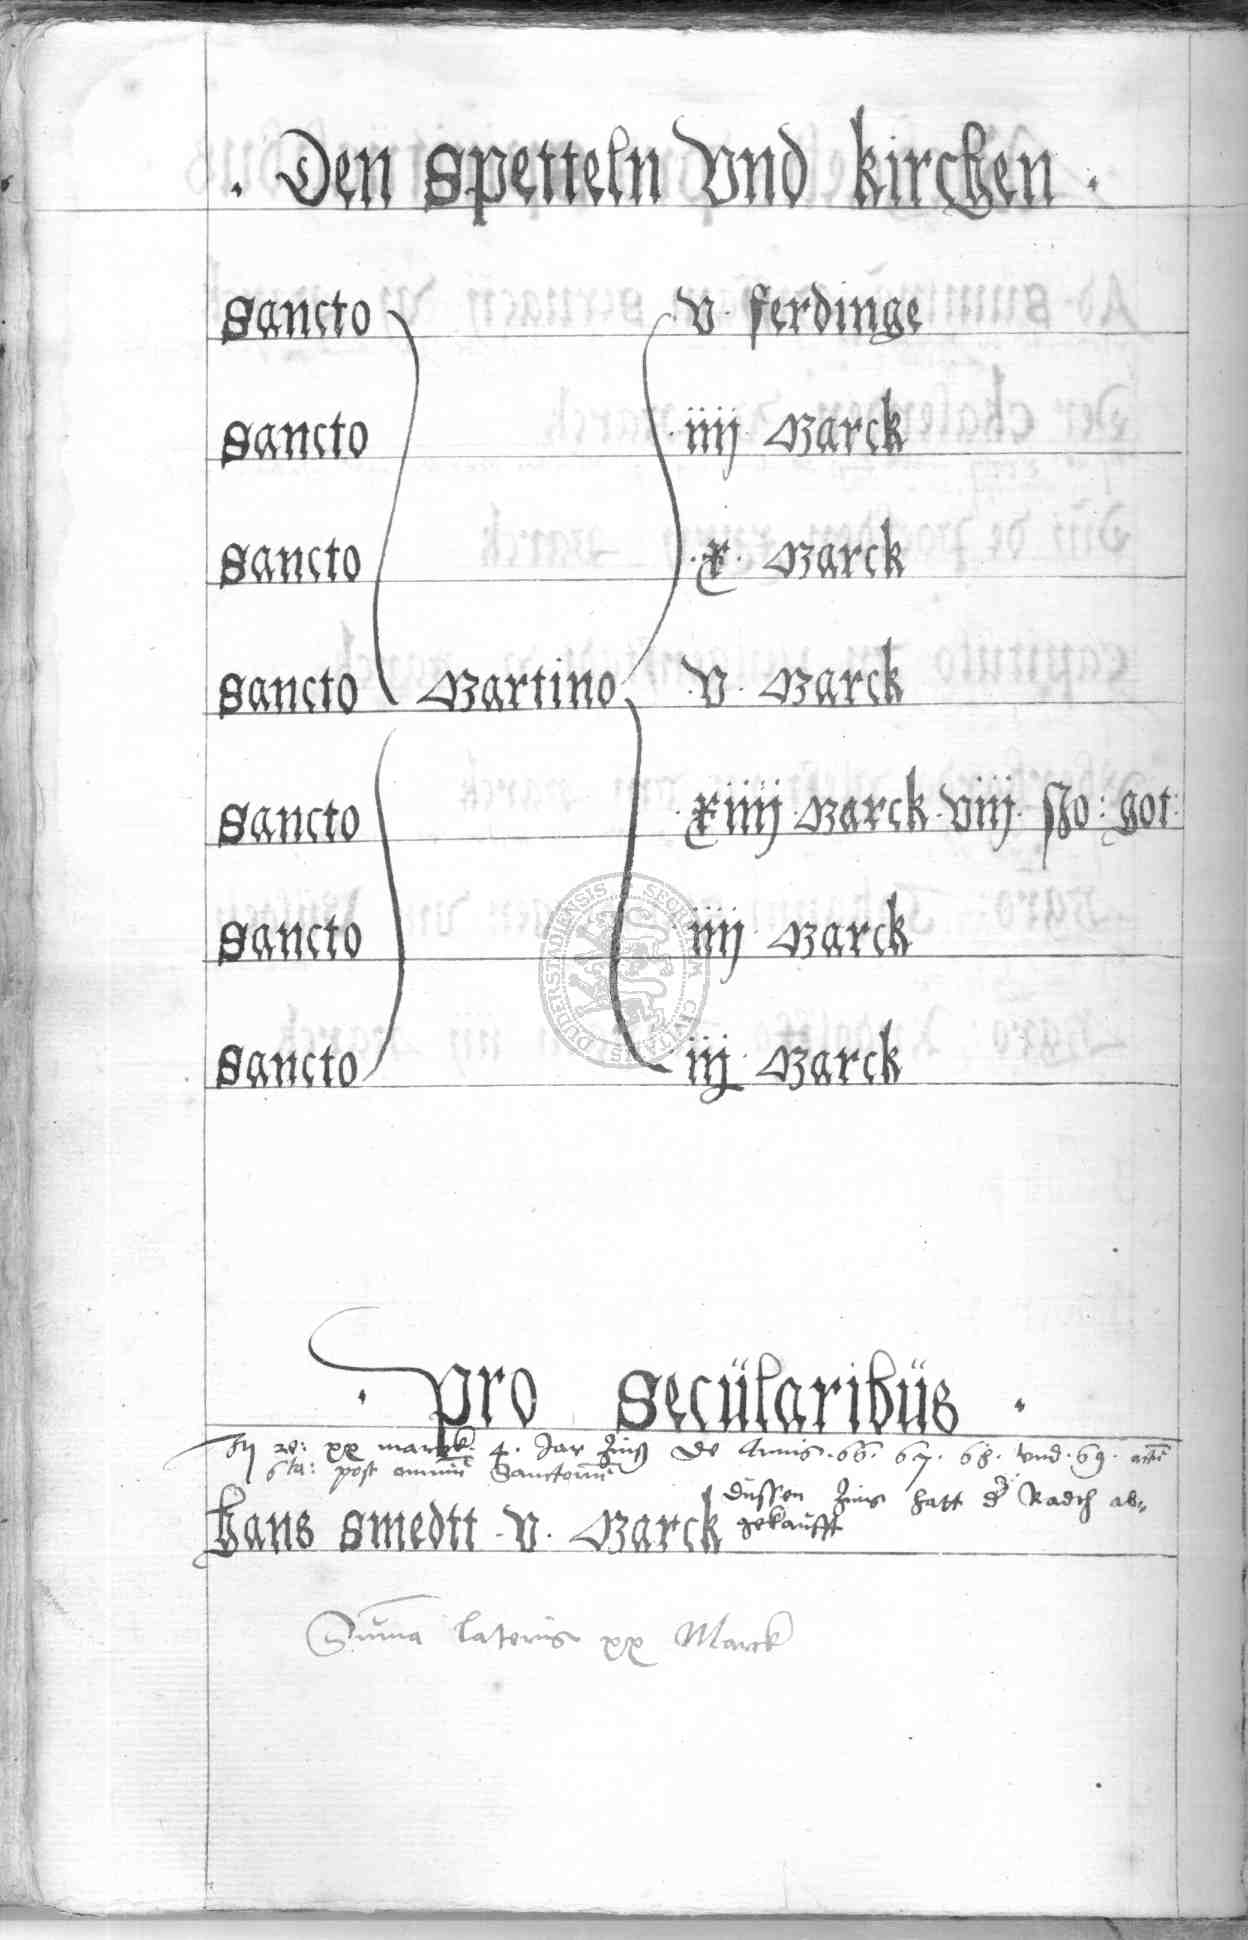 . Den spetteln vnd kirchen .
Sancto .v. ferdinge
Sancto .iiij. Marck
Sancto .x. Marck
Sancto Martino .v. Marck
Sancto .xiiij. Marck .viij. No: got:
Sancto iiij Marck
Sancto iij Marck
SECRETUM CIVITATIS DUDERSTADENSIS
. pro secularibüs .
xx marck. 4. Jar Zinß de Annis .66. 67. 68. vnd .69.
6ta: post omniū Sanctorū
düssen Zins hatt dr Radth ab=
gekaufft
Hans smedtt .v. Marck
Sūma lateris xx Marck